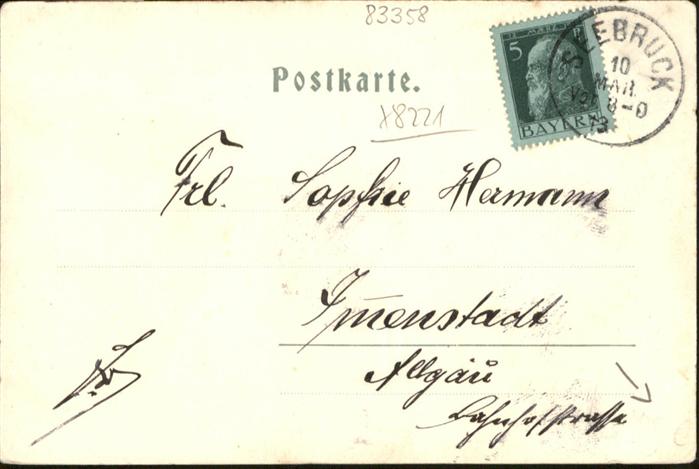 83358
Postkarte.
X8221
12 MÄRZ
5 P
BAYERN
SEEBRUCK
10
MAR.
8-9
13
Frl. Sophie Hermann
Immenstadt
Allgäu
Bahnhofstrasse